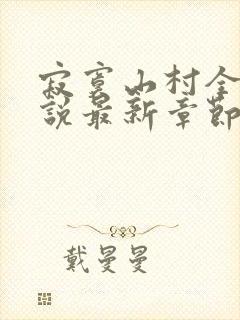 寂寞山村全
說最新章節
戴曼曼